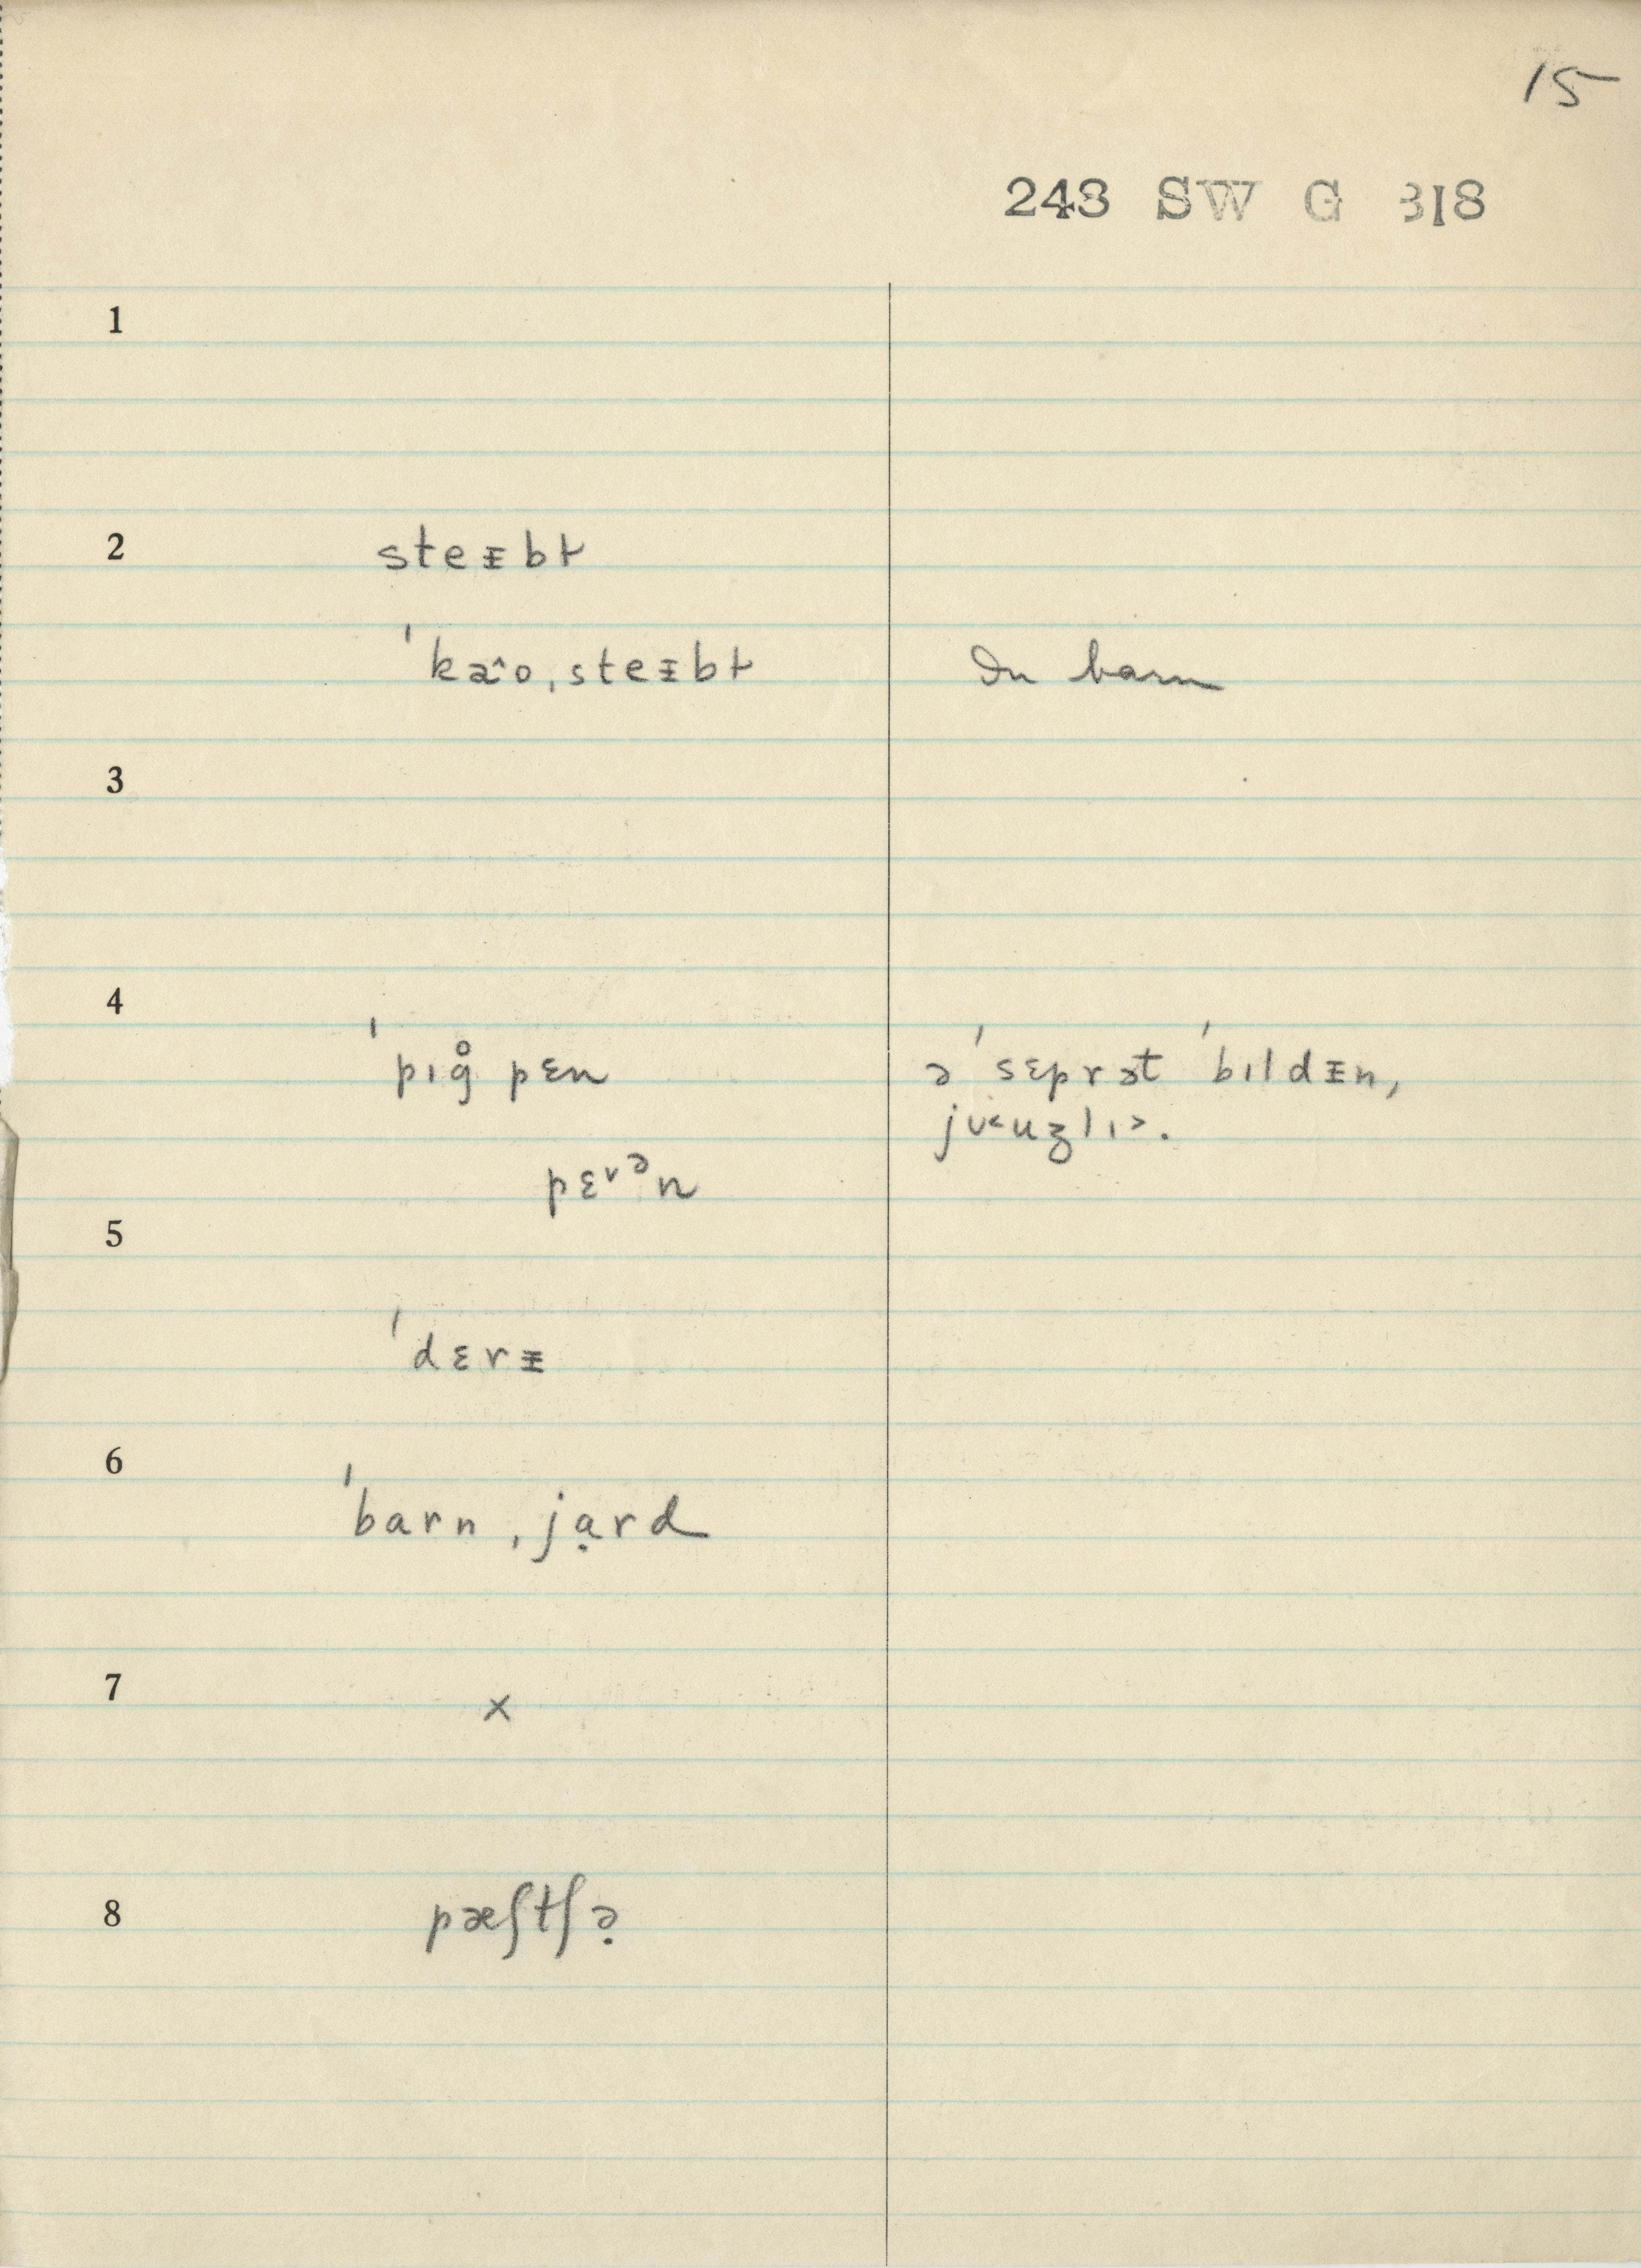 15
243 SW G 318
1
2 steᵻbɫ
ˈka̵˄o ˌsteᵻbɫ In barn
3
4
ˈpɪg̊ pɛn ə ˈsɛprət ˈbɪldᵻn,
jʊ˂uʒlɪ˃.
pɛ˅ᵊn
5
ˈdɛrᵻ
6
ˈbarn ˌjạrd
7 ×
8 pæʃtʃə̣